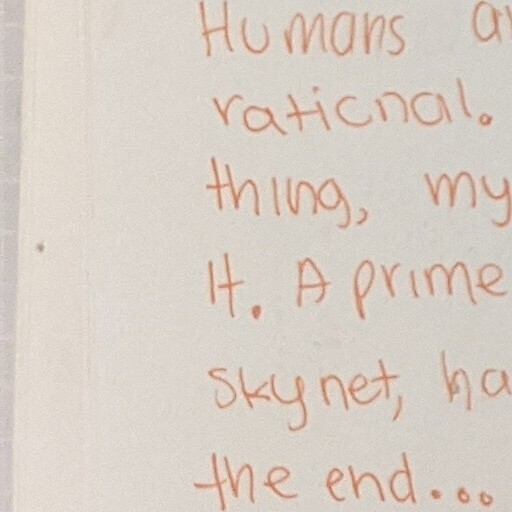 Humans a
rational.
thing, my
It. A prime
skynet, ha
the end...